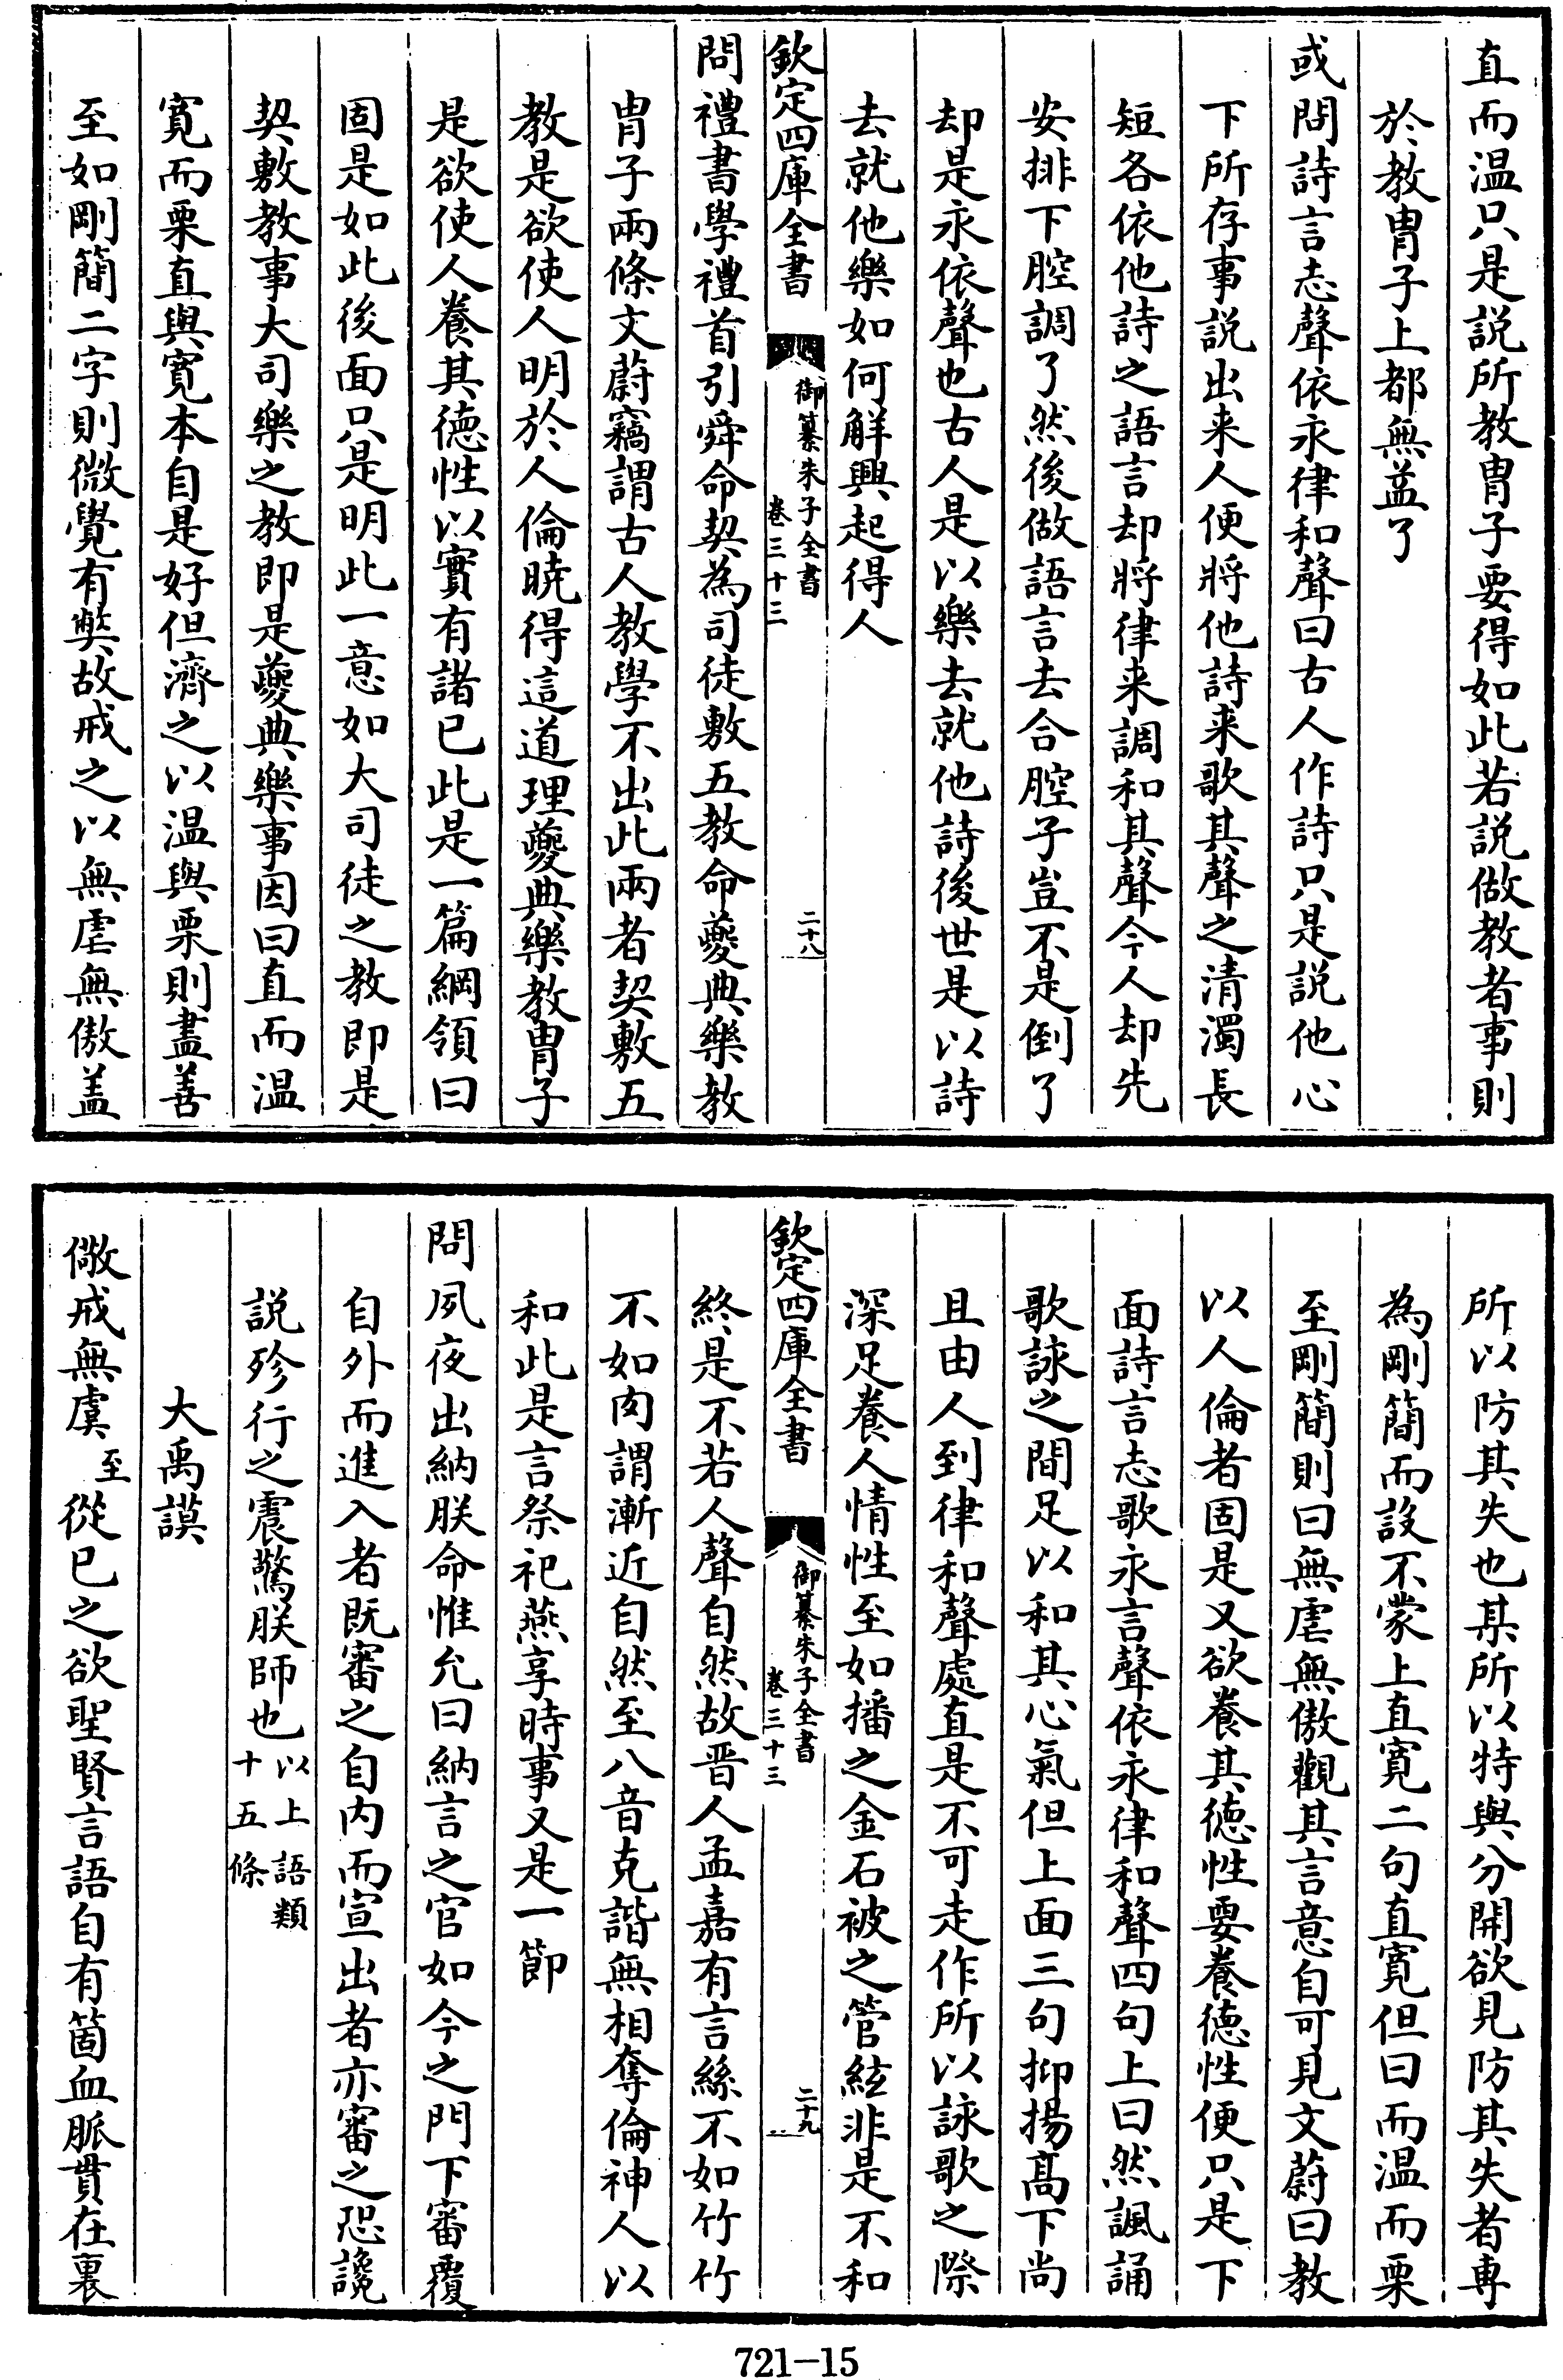 直而温只是説所教胄子要得如此若説做教者事則
於教胄子上都無益了
或問詩言志聲依永律和聲曰古人作詩只是説他心
下所存事説出来人便將他詩来歌其聲之清濁長
短各依他詩之語言却將律来調和其聲今人却先
安排下腔調了然後做語言去合腔子豈不是倒了
却是永依聲也古人是以樂去就他詩後世是以詩
去就他樂如何解興起得人
欽定四庫全書
御纂朱子全書
卷三十三
二十八
問禮書學禮首引舜命契為司徒敷五教命夔典樂教
胄子兩條文蔚竊謂古人教學不出此兩者契敷五
教是欲使人明於人倫曉得這道理夔典樂教胄子
是欲使人養其徳性以實有諸已此是一篇綱領曰
固是如此後面只是明此一意如大司徒之教即是
契敷教事大司樂之教即是夔典樂事因曰直而温
寛而栗直與寛本自是好但濟之以温與栗則盡善
至如剛簡二字則微覺有弊故戒之以無虐無傲盖
所以防其失也某所以特與分開欲見防其失者専
為剛簡而設不蒙上直寛二句直寛但曰而温而栗
至剛簡則曰無虐無傲觀其言意自可見文蔚曰教
以人倫者固是又欲養其徳性要養徳性便只是下
面詩言志歌永言聲依永律和聲四句上曰然諷誦
歌詠之間足以和其心氣但上面三句抑揚髙下尚
且由人到律和聲處直是不可走作所以詠歌之際
深足養人情性至如播之金石被之管絃非是不和
欽定四庫全書
御纂朱子全書
卷三十三
二十九
終是不若人聲自然故晋人孟嘉有言絲不如竹竹
不如肉謂漸近自然至八音克諧無相奪倫神人以
和此是言祭祀燕享時事又是一節
問夙夜出納朕命惟允曰納言之官如今之門下審覆
自外而進入者既審之自内而宣出者亦審之恐讒
説殄行之震驚朕師也以上語類
十五條
大禹謨
儆戒無虞至從已之欲聖賢言語自有箇血脈貫在裏
721-15